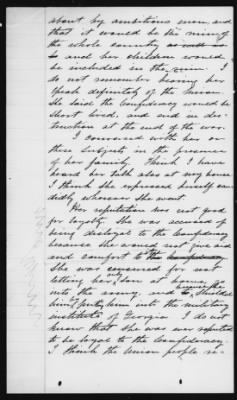 about by ambitious men, and
that it would be the ruin of
the whole country as well as
to and her children would
be included in the ruin. I
do not remember hearing her
speak definitely of the Union.
She said the Confederacy would be
short lived, and end in des-
truction at the end of the war.
I conversed with her on
these subjects in the presence
of her family. Think I have
heard her talk also at my house
I think she expressed herself can-
didly wherever she went.
Her reputation was not good
for loyalty. She was accused of
being disloyal to the Confederacy
because she would not give aid
and comfort to the Confederacy
She was censured for not
letting her only son at home, go
into the army, and because she shielded
him by putting him into the military
institute of Georgia. I do not
know that she was ever reputed
to be loyal to the Confederacy.
I think the Union people re-